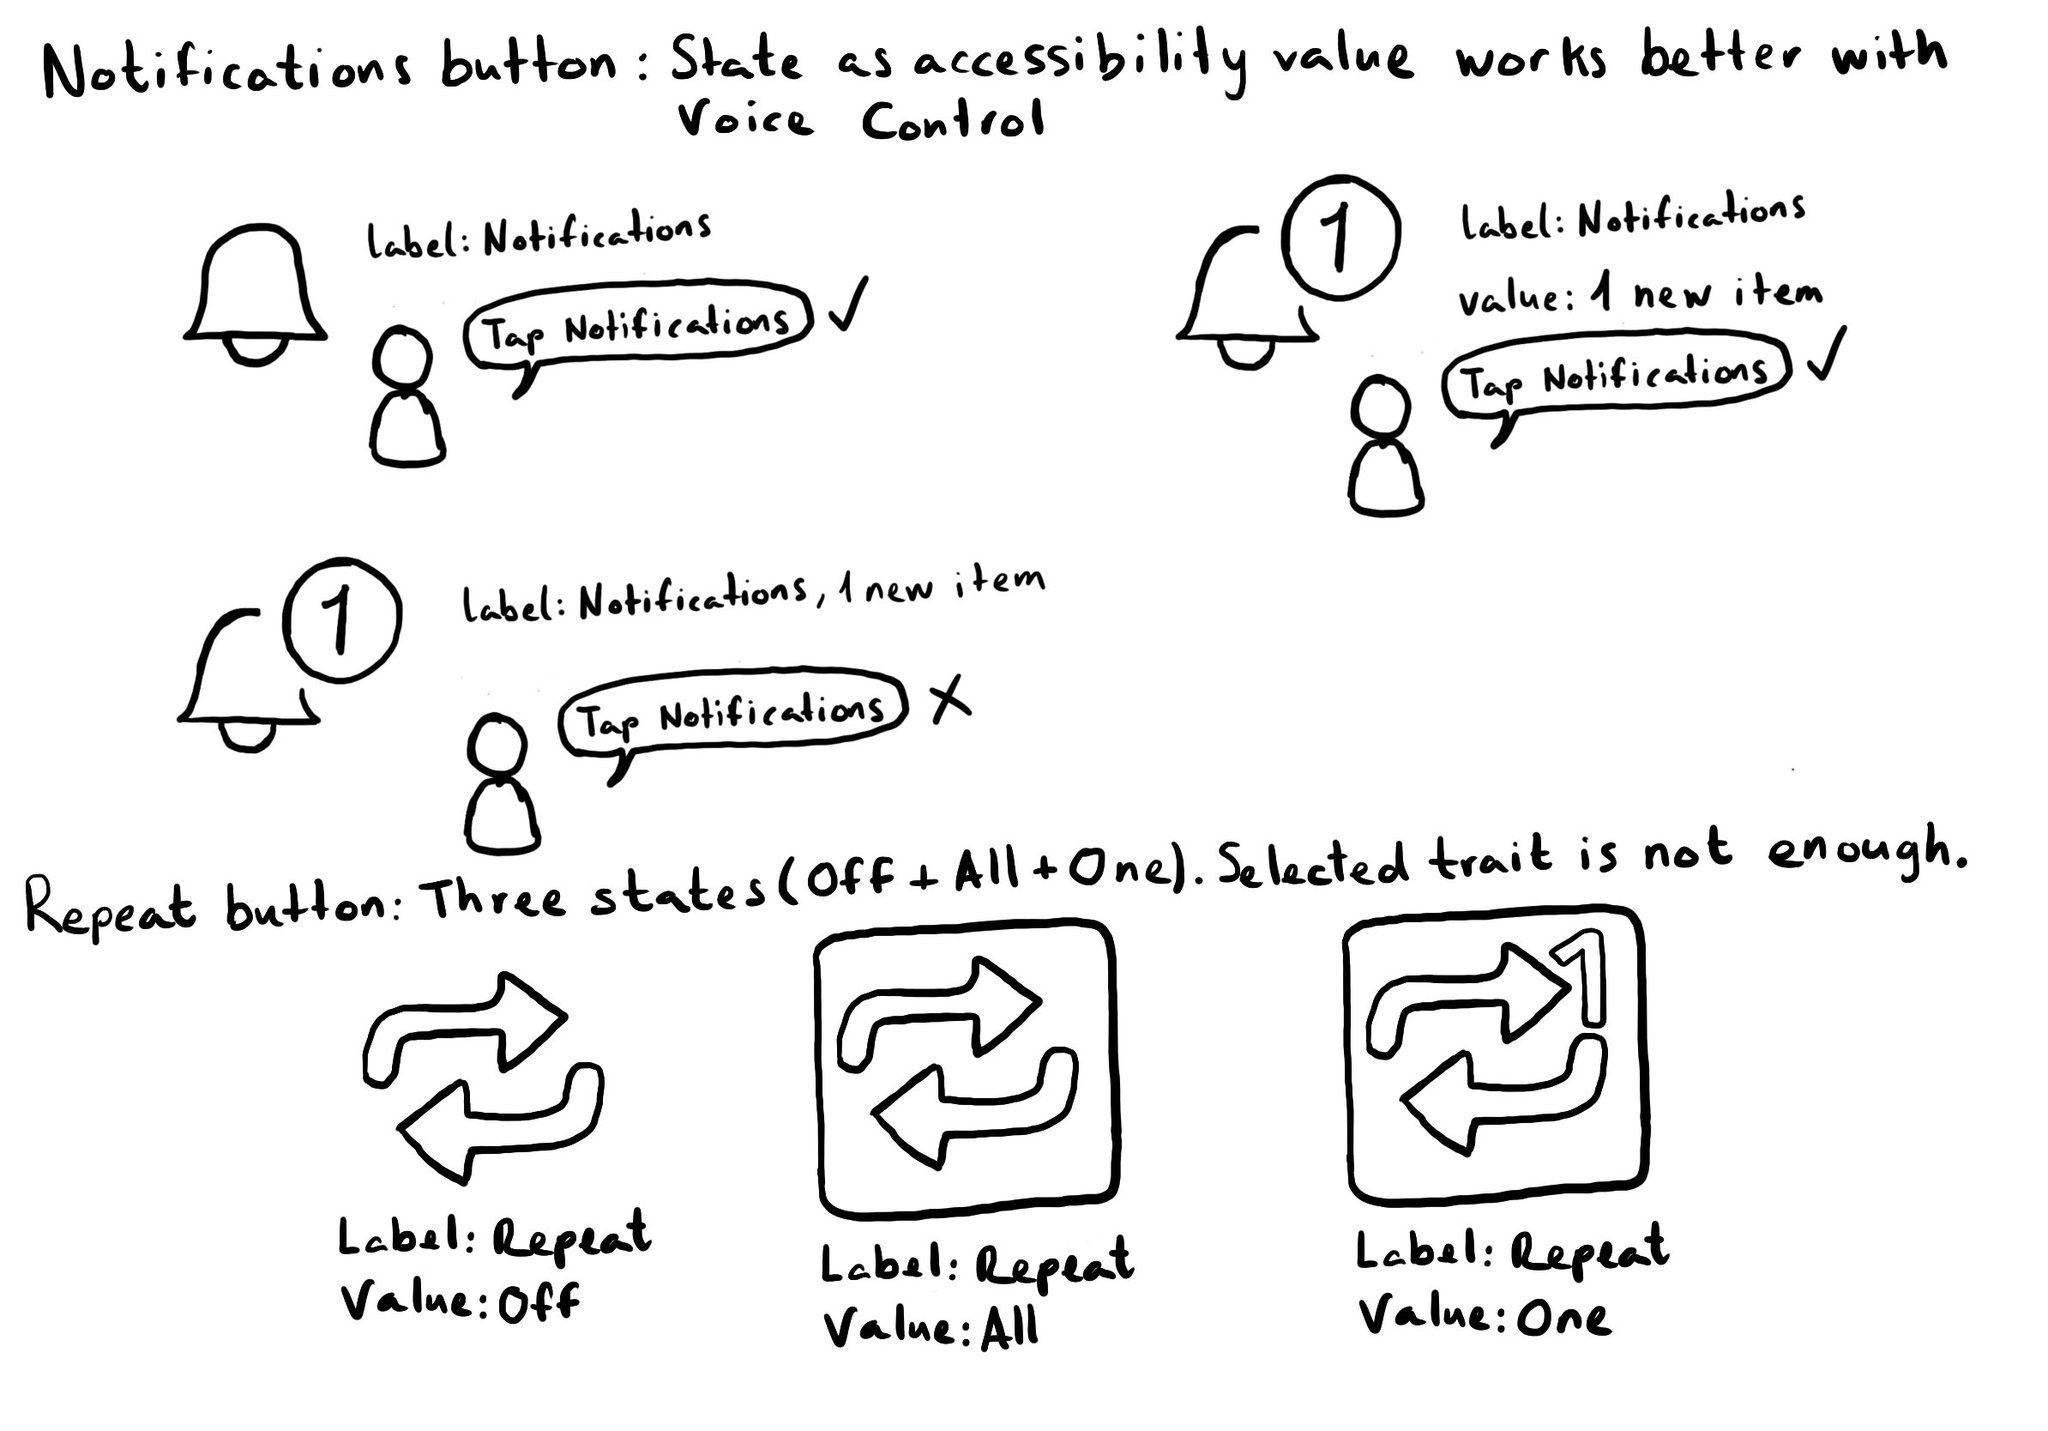 Notifications button: State as accessibility value works better with
Voice Control
Label: Notifications
Tap Notifications
1
Label: Notifications
value: 1 new item
Tap Notifications
1
Label: Notifications, 1 new item
Tap Notifications
Repeat button: Three states (Off + All + One). Selected trait is not enough.
1
Label: Repeat
Value: Off
Label: Repeat
Value: All
Label: Repeat
Value: One